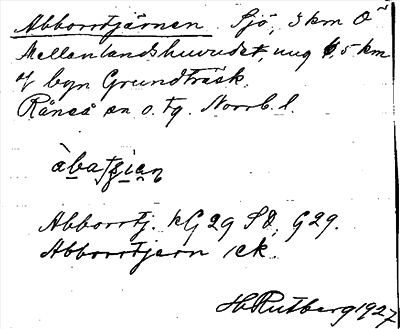 Abborrtjärnen Sjö, 3 km Ö
Mellanlandshuvudet, ung 6,5 km
af byn Grundträsk.
Råneå sn o. tg. Norrb. l.
àbatʃɩ̀an
Abborrtj. kG 29 SO, G29.
Abborrtjern ek.
HRutberg 1927